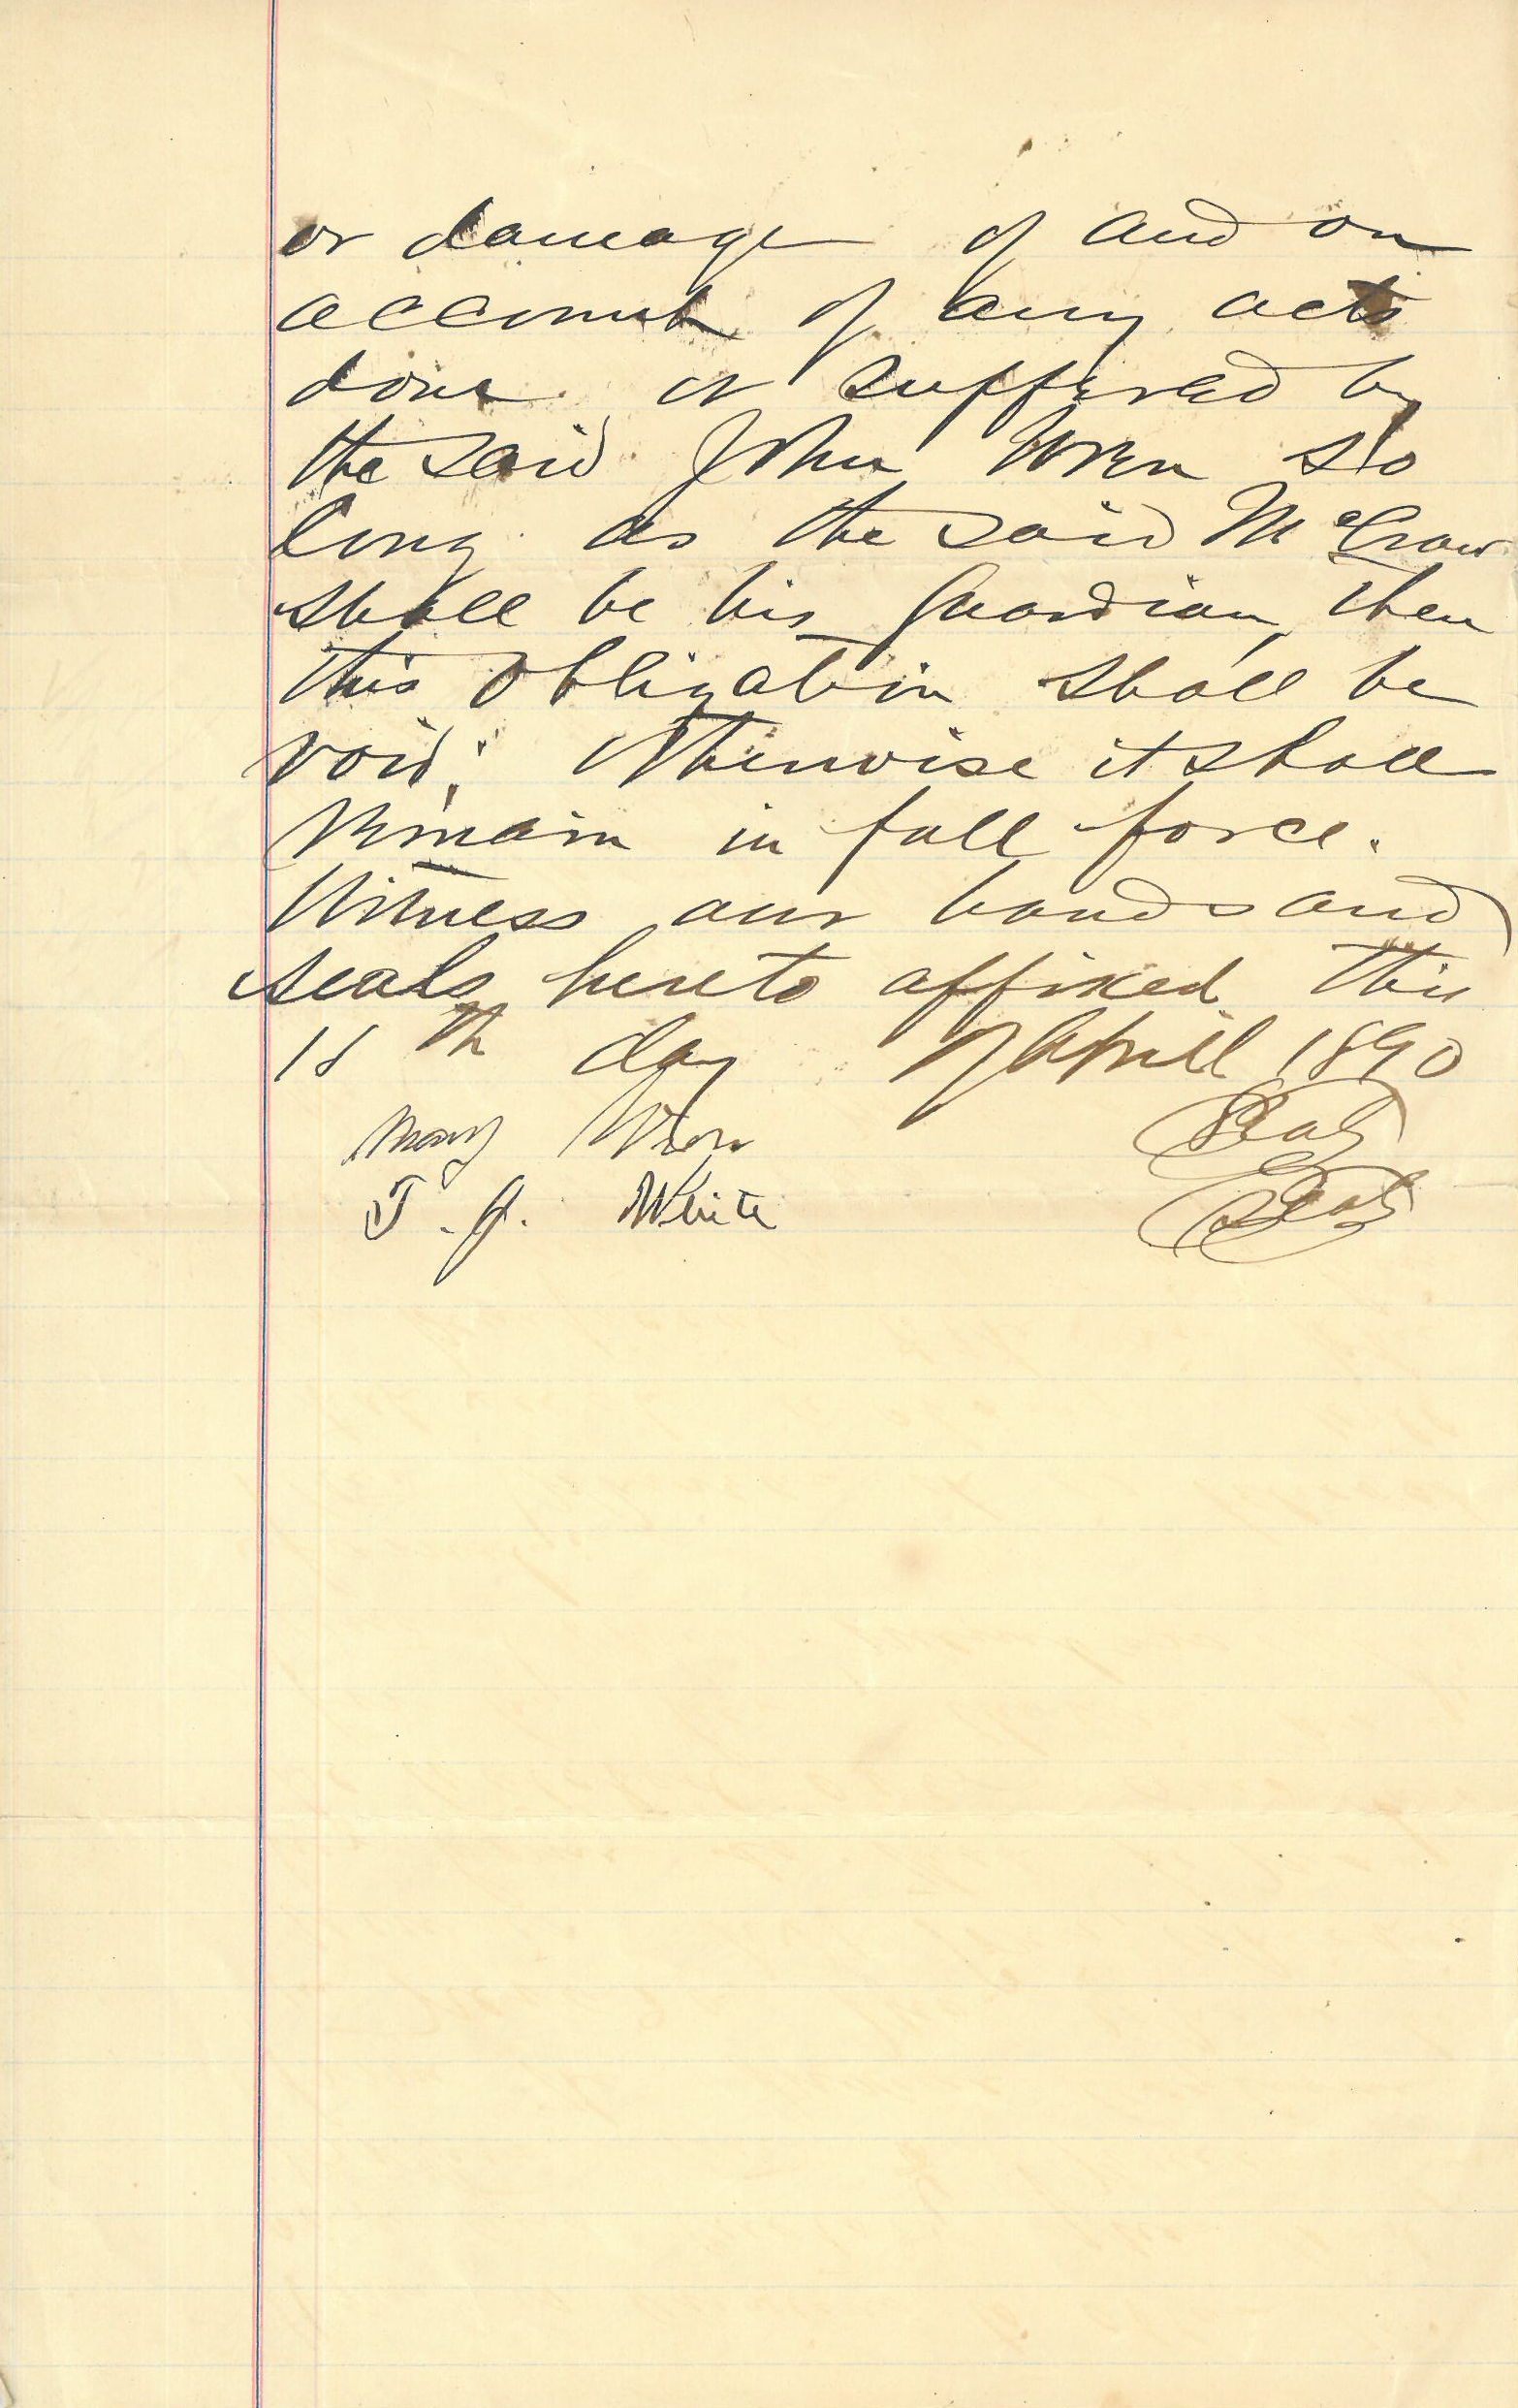 or damage of and on
account of any acts
done or suffered by
the said John Wren so
long as the said McGraw
shall be his Guardian, then
this obligation shall be
void; Otherwise it shall
remain in full force.
Witness our hands and
seals hereto affixed this
18th day of April 1890
Mary Wren Seal
T. J. White Seal